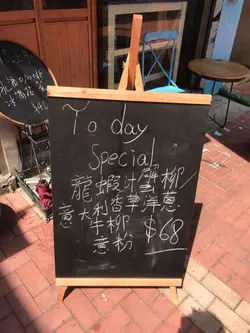 Today
Special
龍蝦汁蟹柳
意大利香草洋蔥
牛柳 $68
意粉